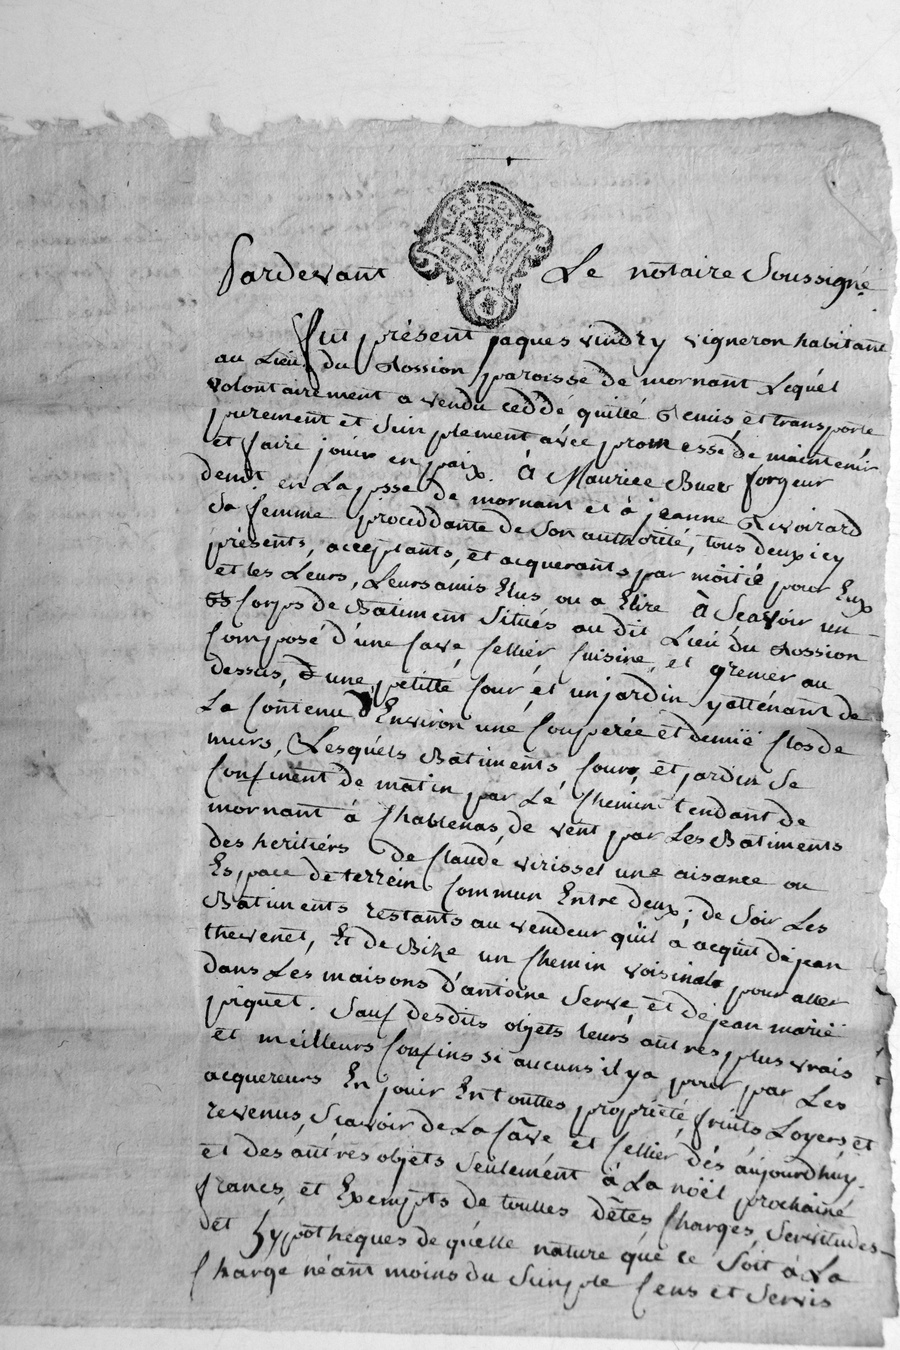 Pardevant Le notaire Soussigné
Fut présent jaques vindry vigneron habitant
au Lieu du Rossion paroisse de mornant Lequél
volontairement a vendu ceddé quitté Remis, et transporté
purement et Simplement avéc promesse de maintenir
et faire jouir en paix. À Maurice Buer forgeur
demt. en La psse. de mornant et à jeanne Revoirard
Sa femme proceddante de Son authorité, tous deux icy
présents, acceptants, et acquerants par moitié pour Eux
et les Leurs, Leurs amis Elus ou a Elire À Scavoir un
Corps de Batiment Situés au dit Lieu du Rossion
Composé d'une Cave, Cellier Cuisine, et grenier au
dessus, d'une petitte Cour, et un jardin y atténant de
La Contenu d'Environ une Couperée et demië Clos de
murs, Lesquéls Batiments, Cour, et jardin Se
Confinent de matin par Le Chemin tendant de
mornant à Chablenas, de vent par Les Batiments
des heritiérs de Claude virissel une aisance ou
Espace de terrein Commun Entre deux; de Soir Les
Batiments restants au vendeur qu'il a acquit de jean
thevenet, Et de Bize un Chemin voisinal pour aller
dans Les maisons d'antoine Serve, et de jean marië
piquet. Sauf desdits objets leurs autres plus vrais
et meilleurs Confins si aucuns il y a pour par Les
acquereurs En jouir En touttes propriété, fruits Loyers et
revenus, Scavoir de La Cave et Cellier dés aujourdhuy.
et des autres objets Seulement à La noël prochainé
francs, et Exempts de touttes dêtes, Charges, Servitudes
et hypotheques de quélle nature que ce Soit a La
Charge néant moins du Simple Cens et Servis